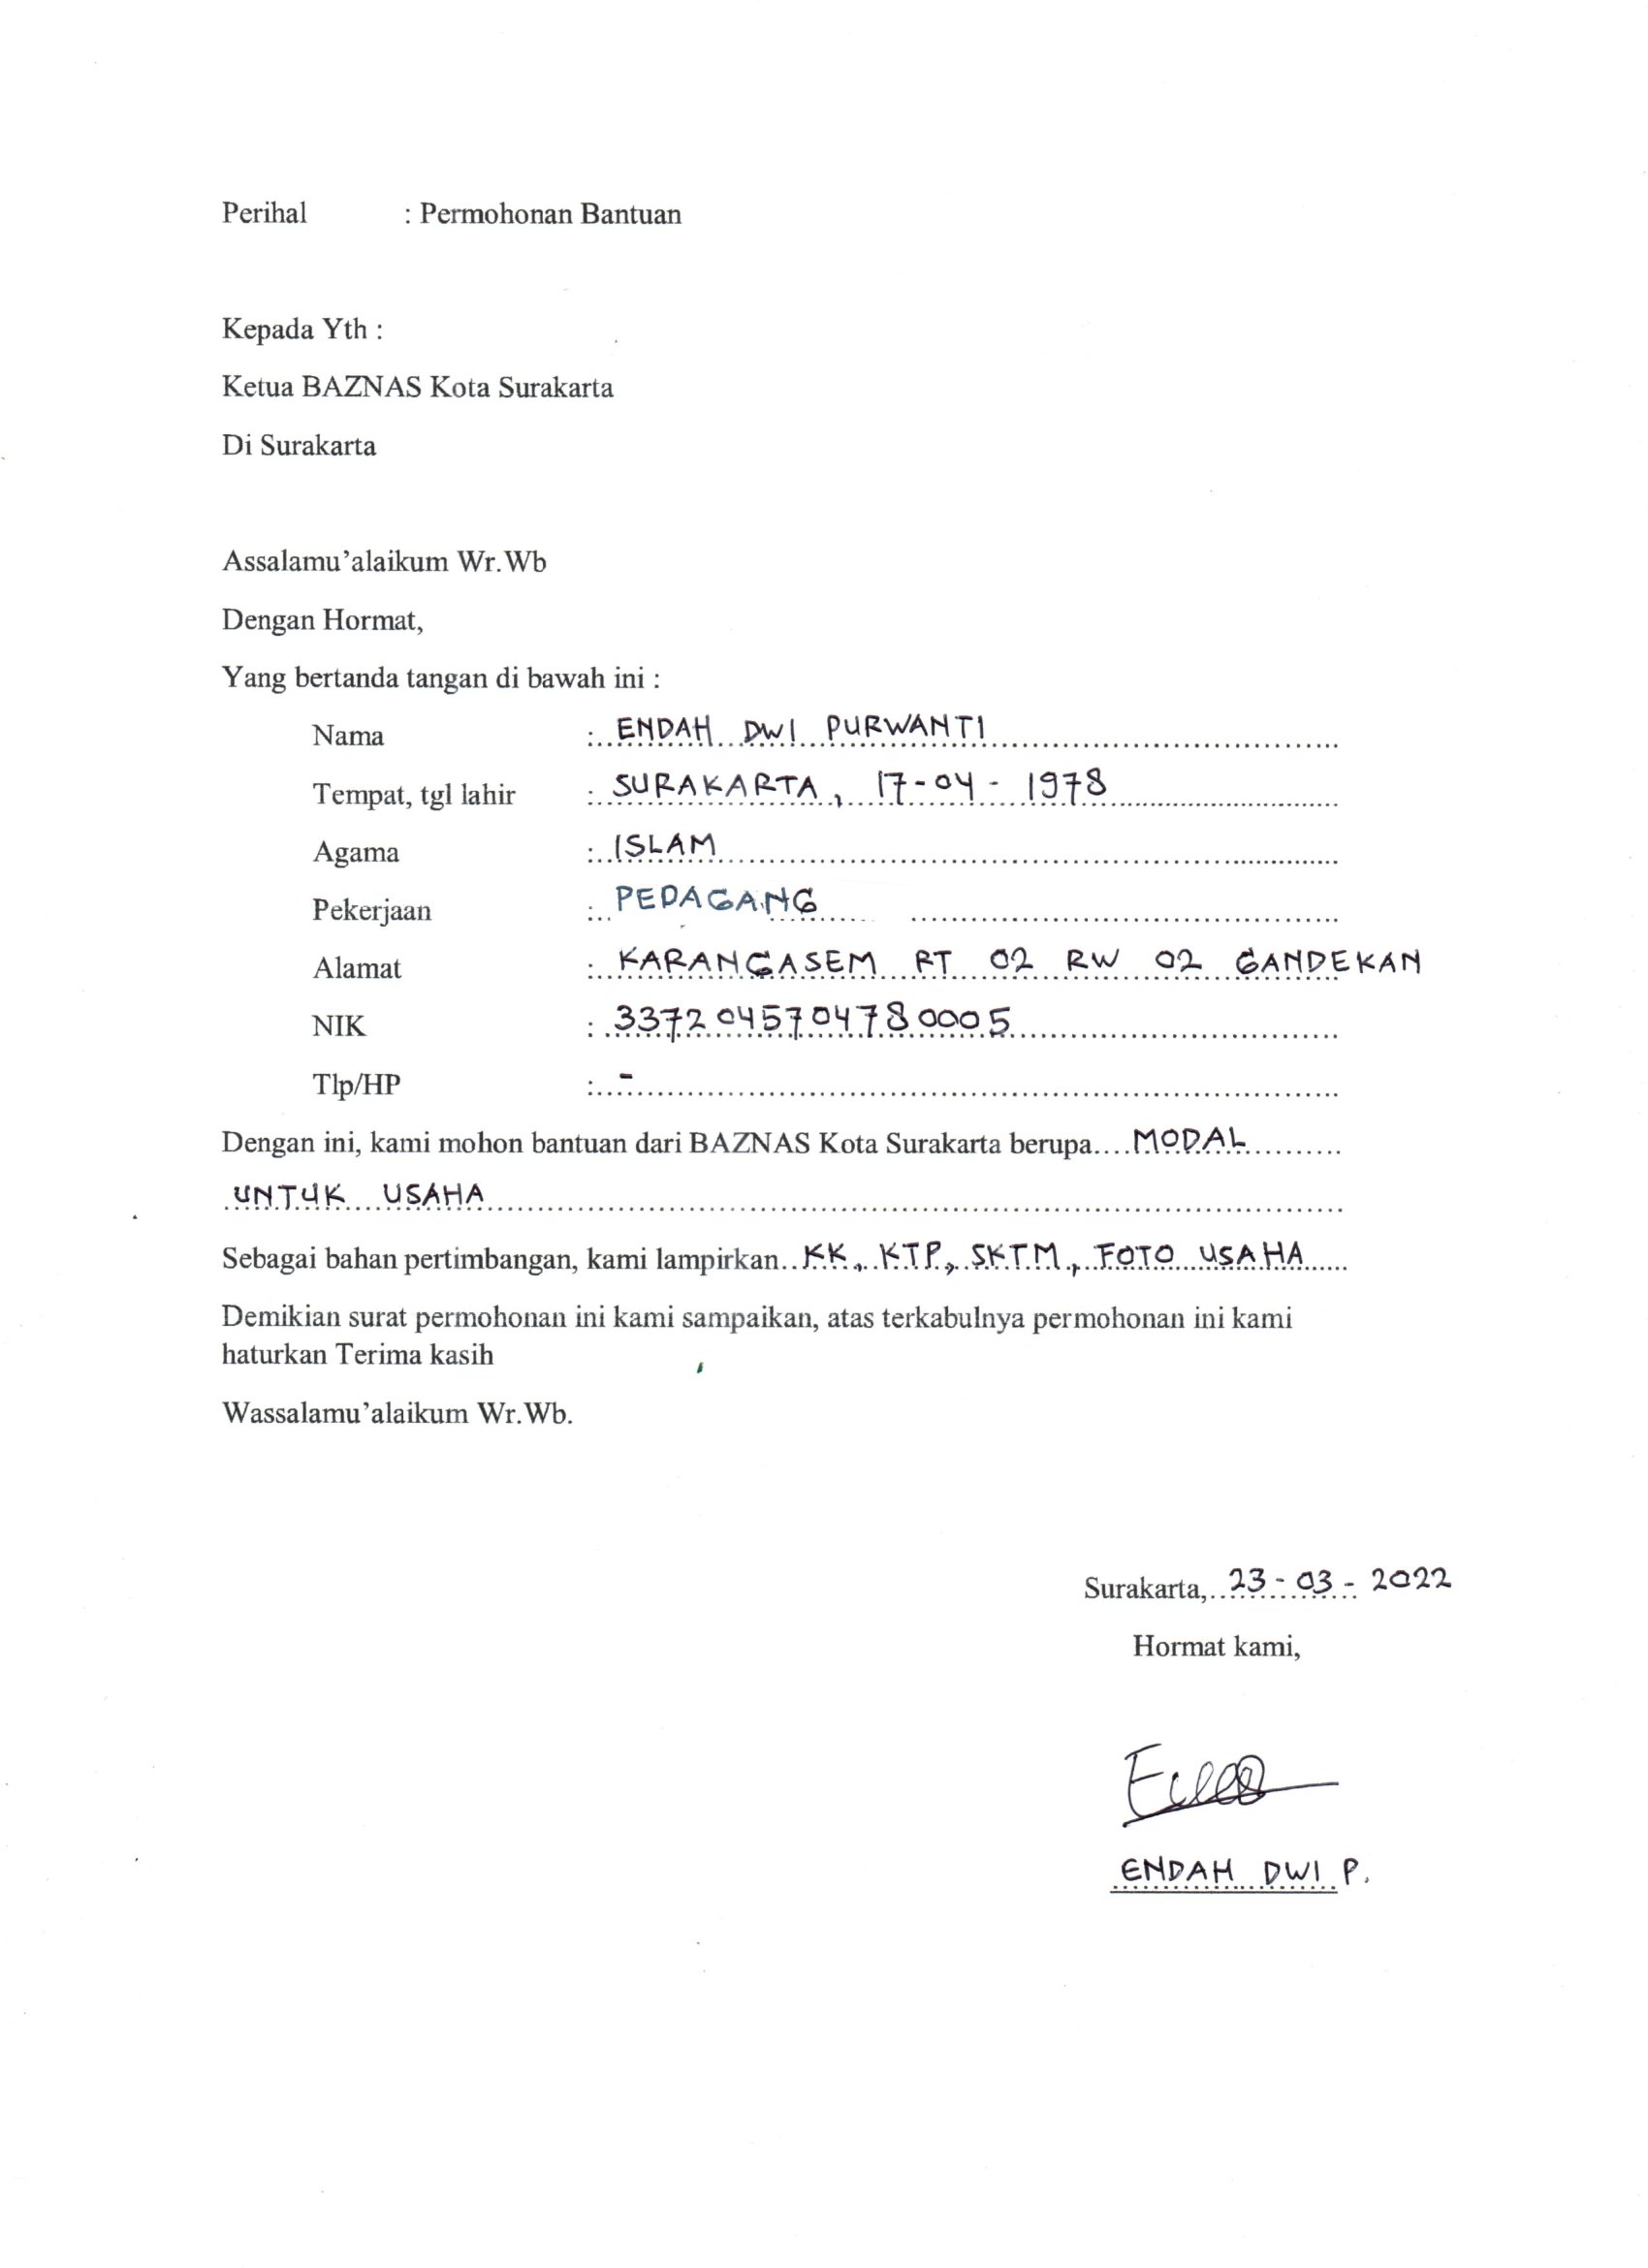 Perihal : Permohonan Bantuan
Kepada Yth :
Ketua BAZNAS Kota Surakarta
Di Surakarta
Assalamu’alaikum Wr.Wb
Dengan Hormat,
Yang bertanda tangan di bawah ini :
Nama : ENDAH DWI PURWANTI
Tempat, tgl lahir : SURAKARTA, 17-04-1978
Agama : ISLAM
Pekerjaan : PEDAGANG
Alamat : KARANGASEM RT 02 RW 02 GANDEKAN
NIK : 3372045704780005
Tlp/HP : -
Dengan ini, kami mohon bantuan dari BAZNAS Kota Surakarta berupa....MODAL
UNTUK USAHA
Sebagai bahan pertimbangan, kami lampirkan..KK, KTP, SKTM, FOTO USAHA
Demikian surat permohonan ini kami sampaikan, atas terkabulnya permohonan ini kami
haturkan Terima kasih
Wassalamu’alaikum Wr.Wb.
Surakarta, 23-03-2022
Hormat kami,
ENDAH DWI P.